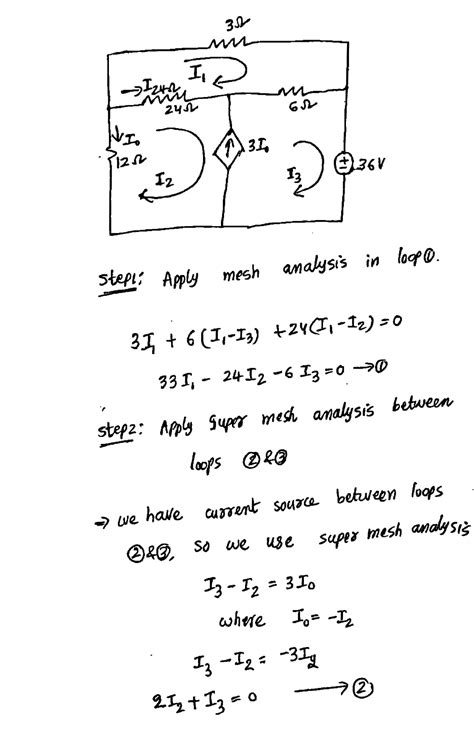 3Ω
I₁
I24Ω
24Ω
6Ω
I₀
12Ω
3I₀
36V
I₂
I₃
Step1: Apply mesh analysis in loop①.
3I₁ + 6(I₁-I₃) +24(I₁-I₂)=0
33I₁ - 24I₂ -6I₃=0 →①
Step2: Apply Super mesh analysis between
loops ②&③
→ we have current source between loops
②&③, so we use super mesh analysis
I₃-I₂ = 3I₀
where I₀= -I₂
I₃-I₂= -3I₂
2I₂+I₃=0 →②